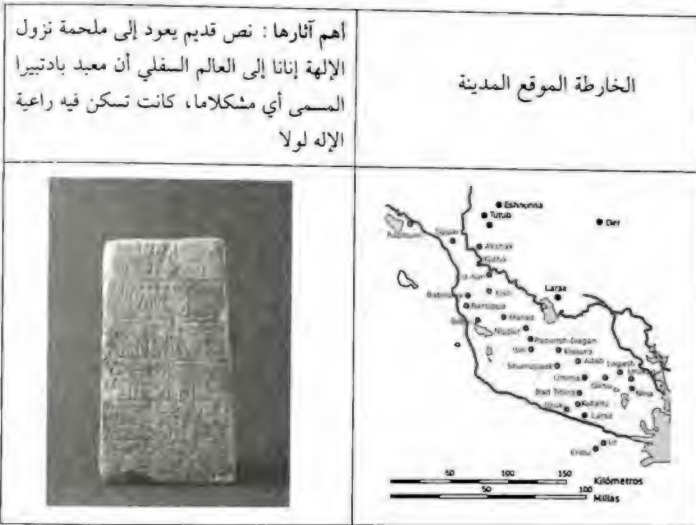 أهم آثارها : نص قديم يعود إلى ملحمة نزول
الإلهة إنانا إلى العالم السفلي أن معبد بادتبيرا
المسمى أي مشكلاما، كانت تسكن فيه راعية
الإله لولا
الخارطة الموقع المدينة
Eshnunna
Tutub
Der
Sippar
Akshak
Kutha
Larak
Kish
Babilonia
Borsippa
Marad
Nippur
Puzurish-Dagan
Isin
Kissura
Adab
Lagash
Shuruppak
Umma
Girsu
Nina
Bad Tibira
Uruk
Kutallu
Larsa
Ur
Eridu
50
100
150
Kilómetros
50
100
Millas